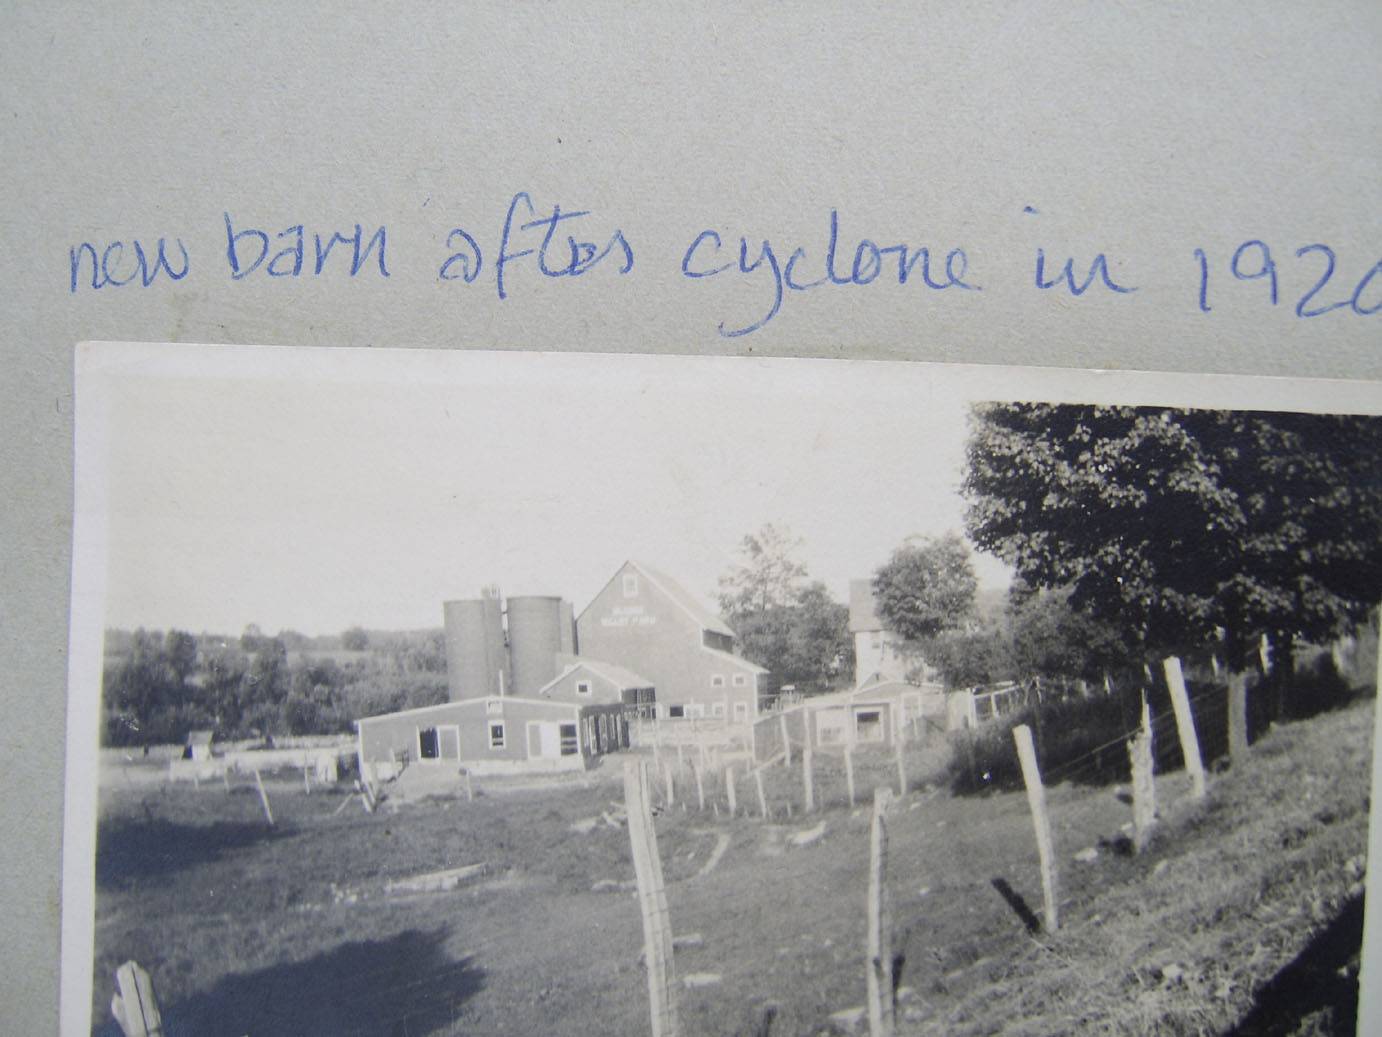 new barn after cyclone in 192
FARM